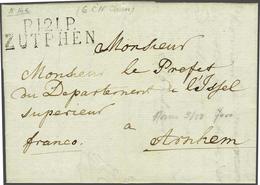 P.121.P.
ZUTPHEN
Monsieur
Monsieur le Prefet
du Departement de l'Issel
superieur
franco.
a
Arnhem